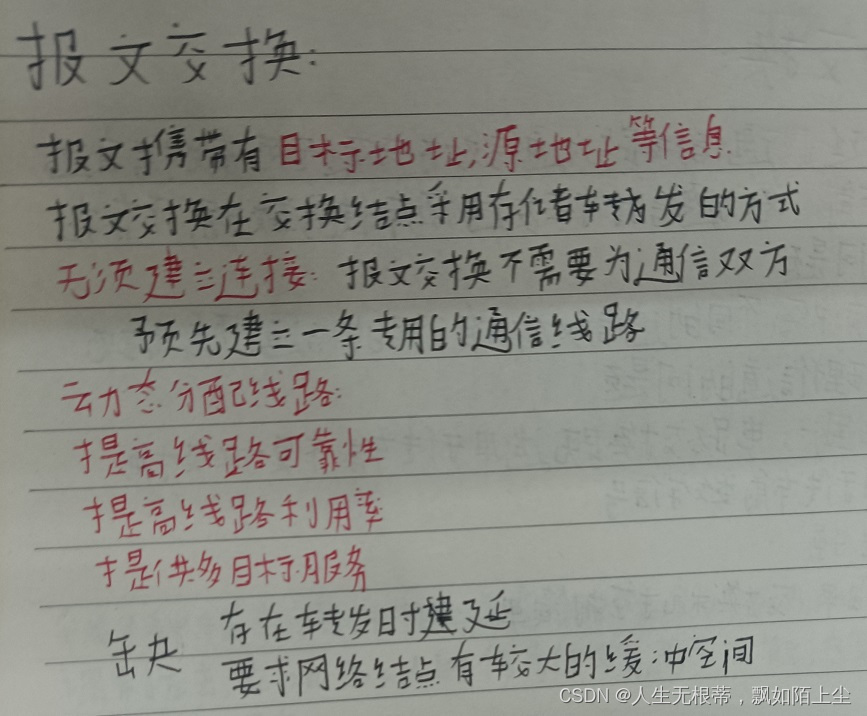 报文交换:
报文携带有目标地址,源地址等信息
报文交换在交换结点采用存储转发的方式
无须建立连接: 报文交换不需要为通信双方
预先建立一条专用的通信线路
动态分配线路:
提高线路可靠性
提高线路利用率
提供多目标服务
缺 存在转发时延
要求网络结点有较大的缓冲空间
CSDN @人生无根蒂，飘如陌上尘